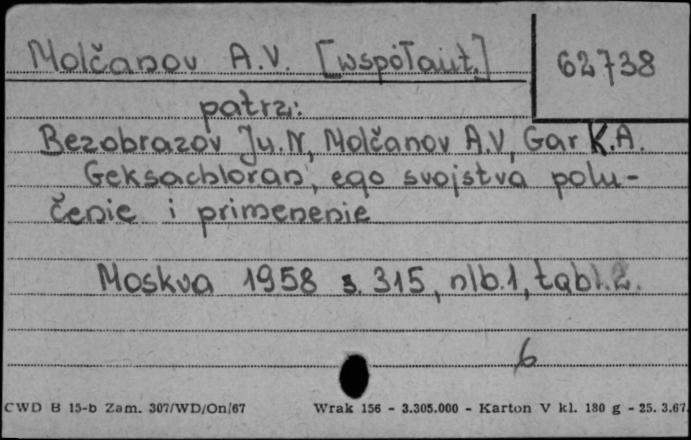 Molčanov A.V. [współaut.]
62738
patrz:
Bezobrazov Ju.N, Molčanov A.V, Gar K.A.
Geksachloran, ego svojstva polu-
čenie i primenenie
Moskva 1958 s. 315, nlb.1, tabl.2.
6
CWD B 15-b Zam. 307/WD/On/67 Wrak 156 - 3.305.000 - Karton V kl. 180 g - 25. 3.67